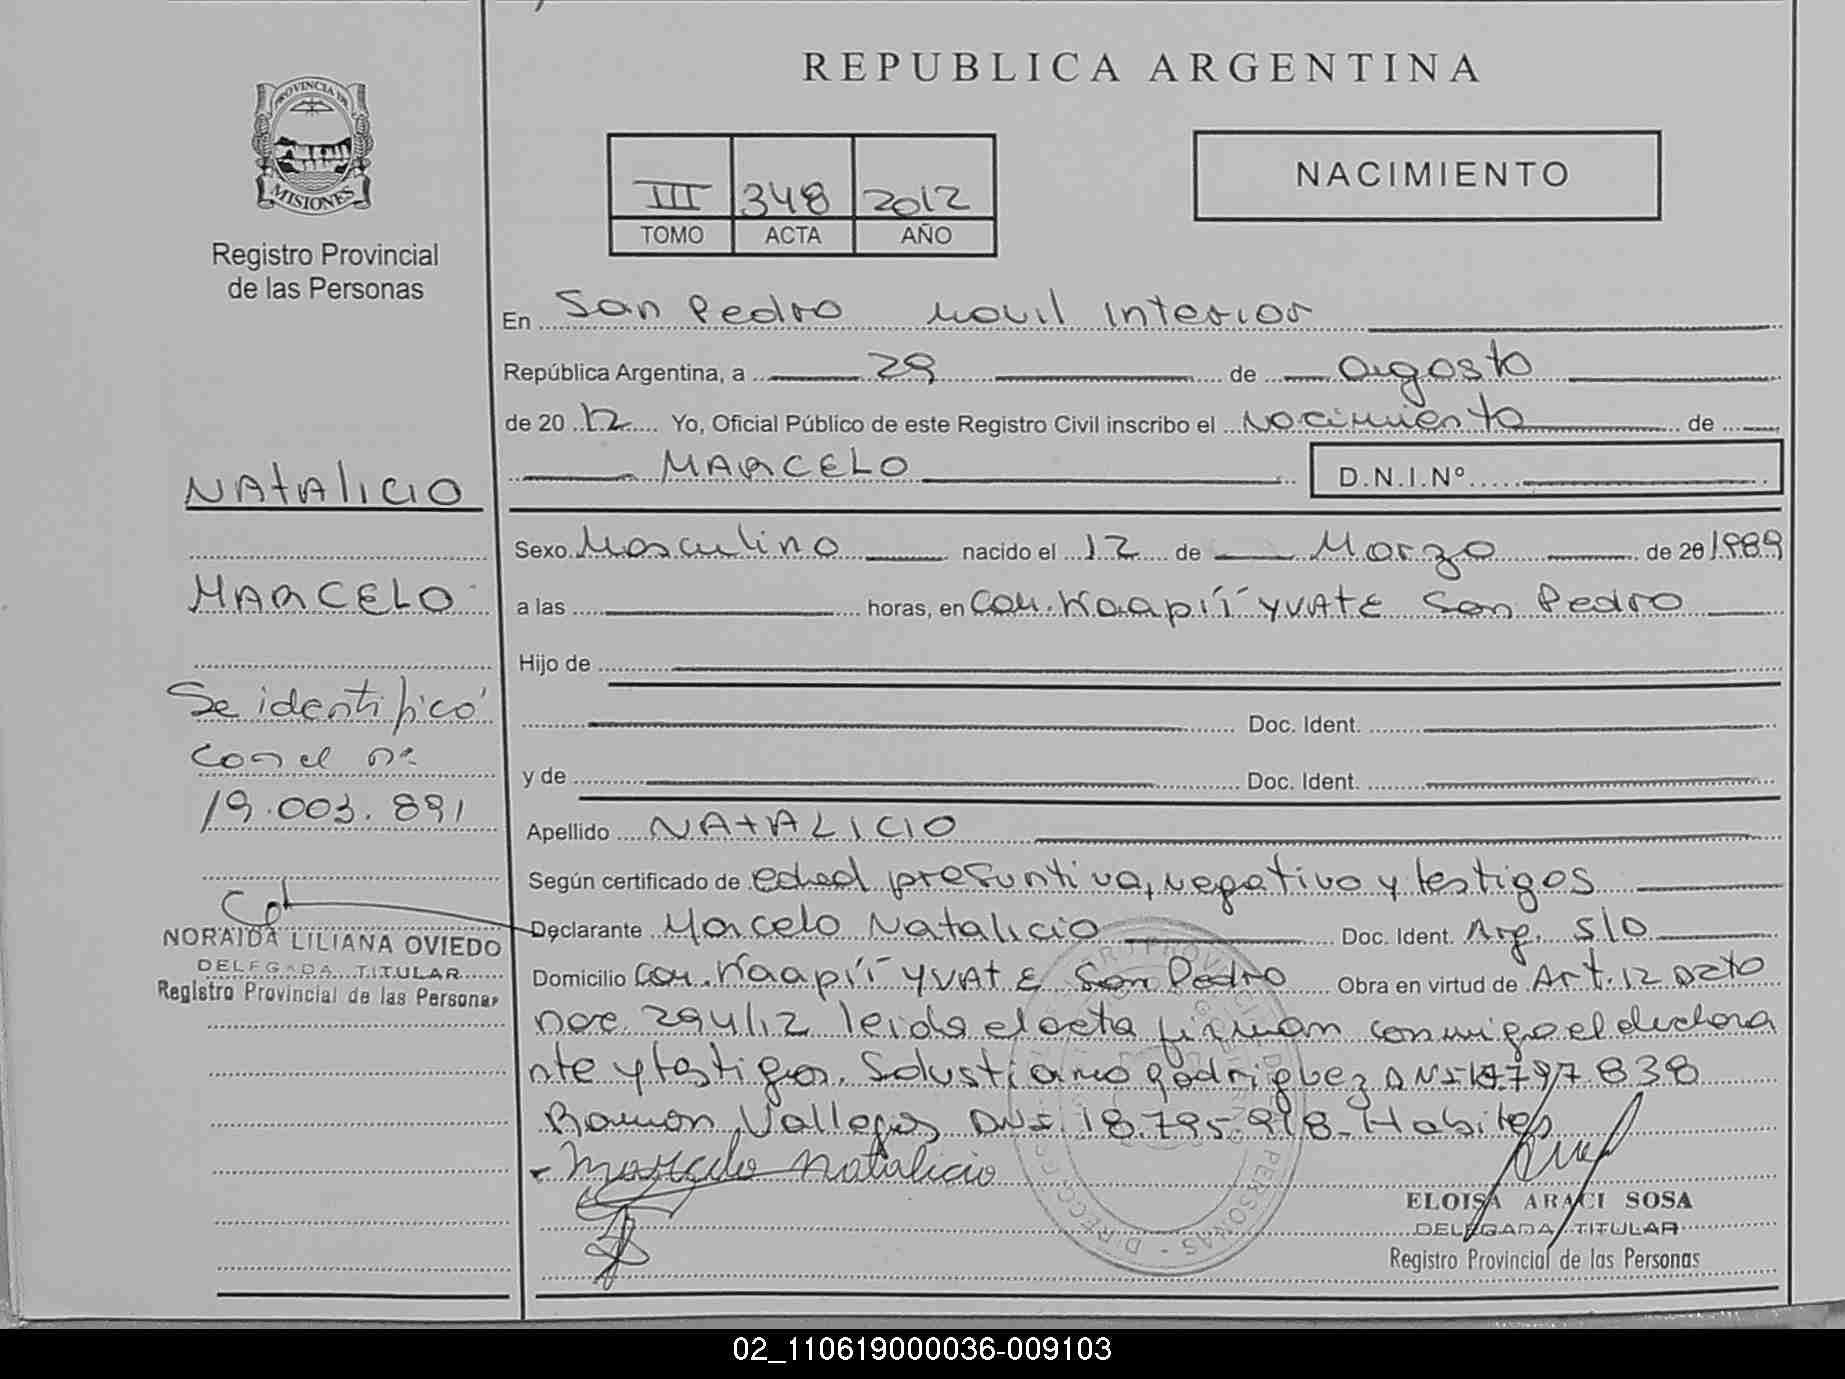 REPUBLICA ARGENTINA
PROVINCIA DE
MISIONES
Registro Provincial
de las Personas
III 348 2012
TOMO ACTA AÑO
NACIMIENTO
En San Pedro Movil Interior
República Argentina, a 29 de Agosto
de 2012 Yo, Oficial Público de este Registro Civil inscribo el Nacimiento de
MARCELO D.N.I.Nº
Sexo Masculino nacido el 12 de Marzo de 20 1989
a las horas, en Com. Kaapií YVATE San Pedro
Hijo de
Doc. Ident.
y de Doc. Ident.
Apellido NATALICIO
Según certificado de edad presuntiva, negativo y testigos
Declarante Marcelo Natalicio Doc. Ident. Arg. S/D
Domicilio Com. Kaapií YVATE San Pedro Obra en virtud de Art. 12 Dcto
nac. 294/12 leida el acta firman conmigo el declara
nte y testigos. Salustiano Rodriguez DNI 797.838
Ramon Vallejos DNI 18.795.918. Habiles
Marcelo Natalicio
ELOISA ARACI SOSA
DELEGADA TITULAR
Registro Provincial de las Personas
NATALICIO
MARCELO
Se identificó
con el nº
19.003.891
NORAIDA LILIANA OVIEDO
DELEGADA TITULAR
Registro Provincial de las Personas
02_110619000036-009103